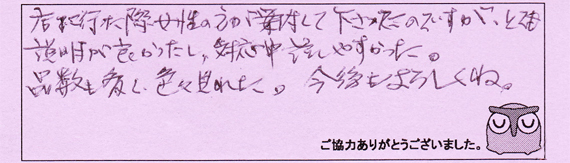 店に行った際女性の方が案内して下さったのですが、とても
説明が良かったし、対応中話しやすかった。
品数も多く、色々見れた。 今後もよろしくね。
ご協力ありがとうございました。